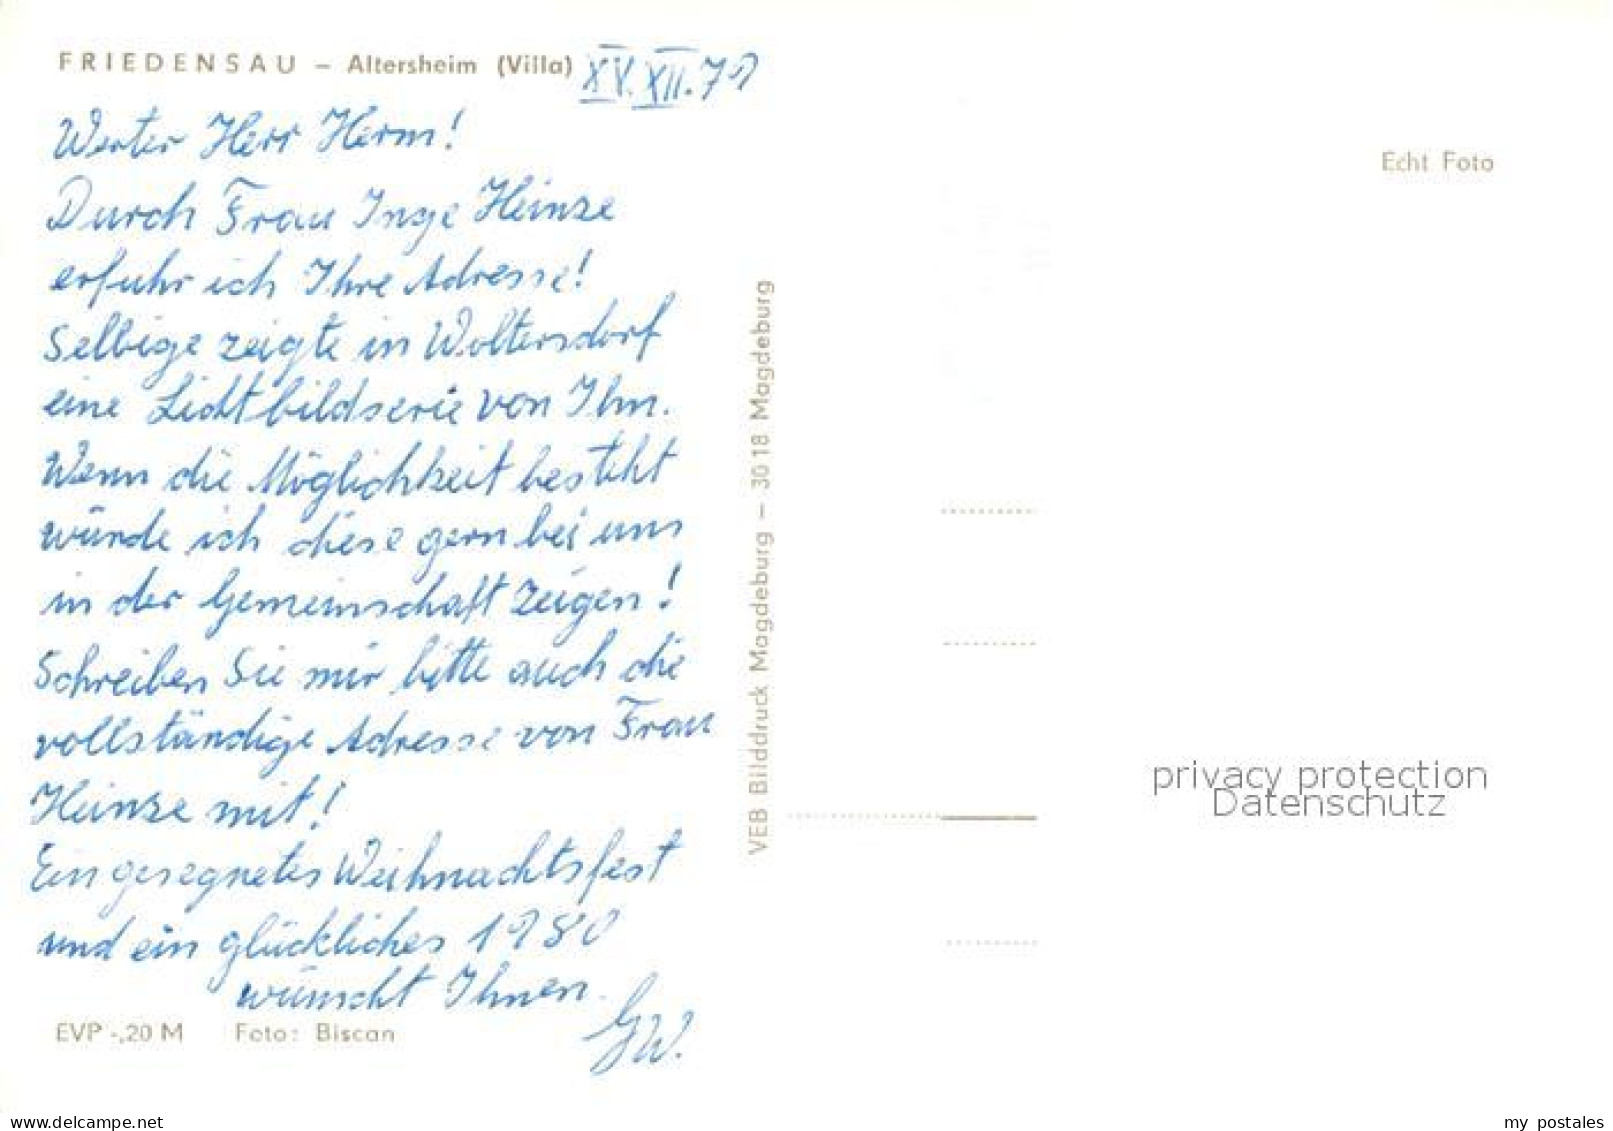 FRIEDENSAU – Altersheim (Villa) XV.XII.79
Werter Herr Herm!
Durch Frau Inge Heinze
erfuhr ich Ihre Adresse!
Selbige zeigte in Woltersdorf
eine Lichtbildserie von Ihn.
Wenn die Möglichkeit besteht
würde ich diese gern bei uns
in der Gemeinschaft zeigen!
Schreiben Sie mir bitte auch die
vollständige Adresse von Frau
Heinze mit!
Ein gesegnetes Weihnachtsfest
und ein glückliches 1980
wünscht Ihnen
GW.
EVP -,20 M Foto: Biscan
VEB Bilddruck Magdeburg – 3018 Magdeburg
Echt Foto
privacy protection
Datenschutz
www.delcampe.net
my postales